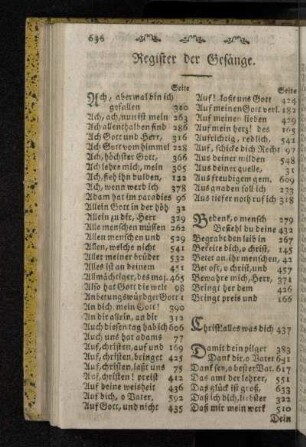 636
Register der Gesänge.
Seite
Ach, abermal bin ich
gefallen 210
Ach, ach, nun ist mein 263
Ach allenthalben sind 286
Ach Gott und Herr, 316
Ach Gott vom himmel 228
Ach, höchster Gott, 366
Ach lehre mich, mein 305
Ach, sieh ihn dulden, 122
Ach, wenn werd ich 378
Adam hat im paradies 96
Allein Gott in der höh 33
Allein zu dir, Herr 329
Alle menschen müssen 262
Allen menschen und 539
Allen, welche nicht 541
Aller meiner brüder 532
Alles ist an deinem 451
Allmächtiger, des maj. 465
Also hat Gott die welt 98
Anbetungswürdger Gott 1
An dich mein Gott! 390
An dir allein, an dir 312
Auch diesen tag hab ich 606
Auch uns hat adams 77
Auf, christen, auf und 169
Auf, christen, bringet 425
Auf, christen, laßt uns 75
Auf, christen! preist 412
Auf deine weisheit 436
Auf dich, o Vater, 592
Auf Gott, und nicht 435
Seite
Auf! laßt uns Gott 429
Auf meinen Gott verl. 182
Auf meinen lieben 429
Auf mein herz! des 165
Aufrichtig, redlich, 541
Auf, schicke dich Recht 97
Aus deiner milden 548
Aus deiner quelle, 31
Aus freudigem gem. 609
Aus gnaden soll ich 223
Aus tiefer noth ruf ich 318
Bedenk, o mensch 279
Befiehl du deine 432
Begrabt den leib in 267
Bereite dich, o christ, 145
Betet an, ihr menschen, 42
Bet oft, o christ, und 457
Bewahre mich, Herr, 371
Bringt her dem 426
Bringt preis und 166
Christ alles was dich 437
Damit dein pilger 383
Dank dir, o Vater 631
Dank sey, o bester Vat. 617
Das amt der lehrer, 551
Das glück ist groß, 633
Daß ich dich, liebster 322
Daß mir mein werk 510
Dein